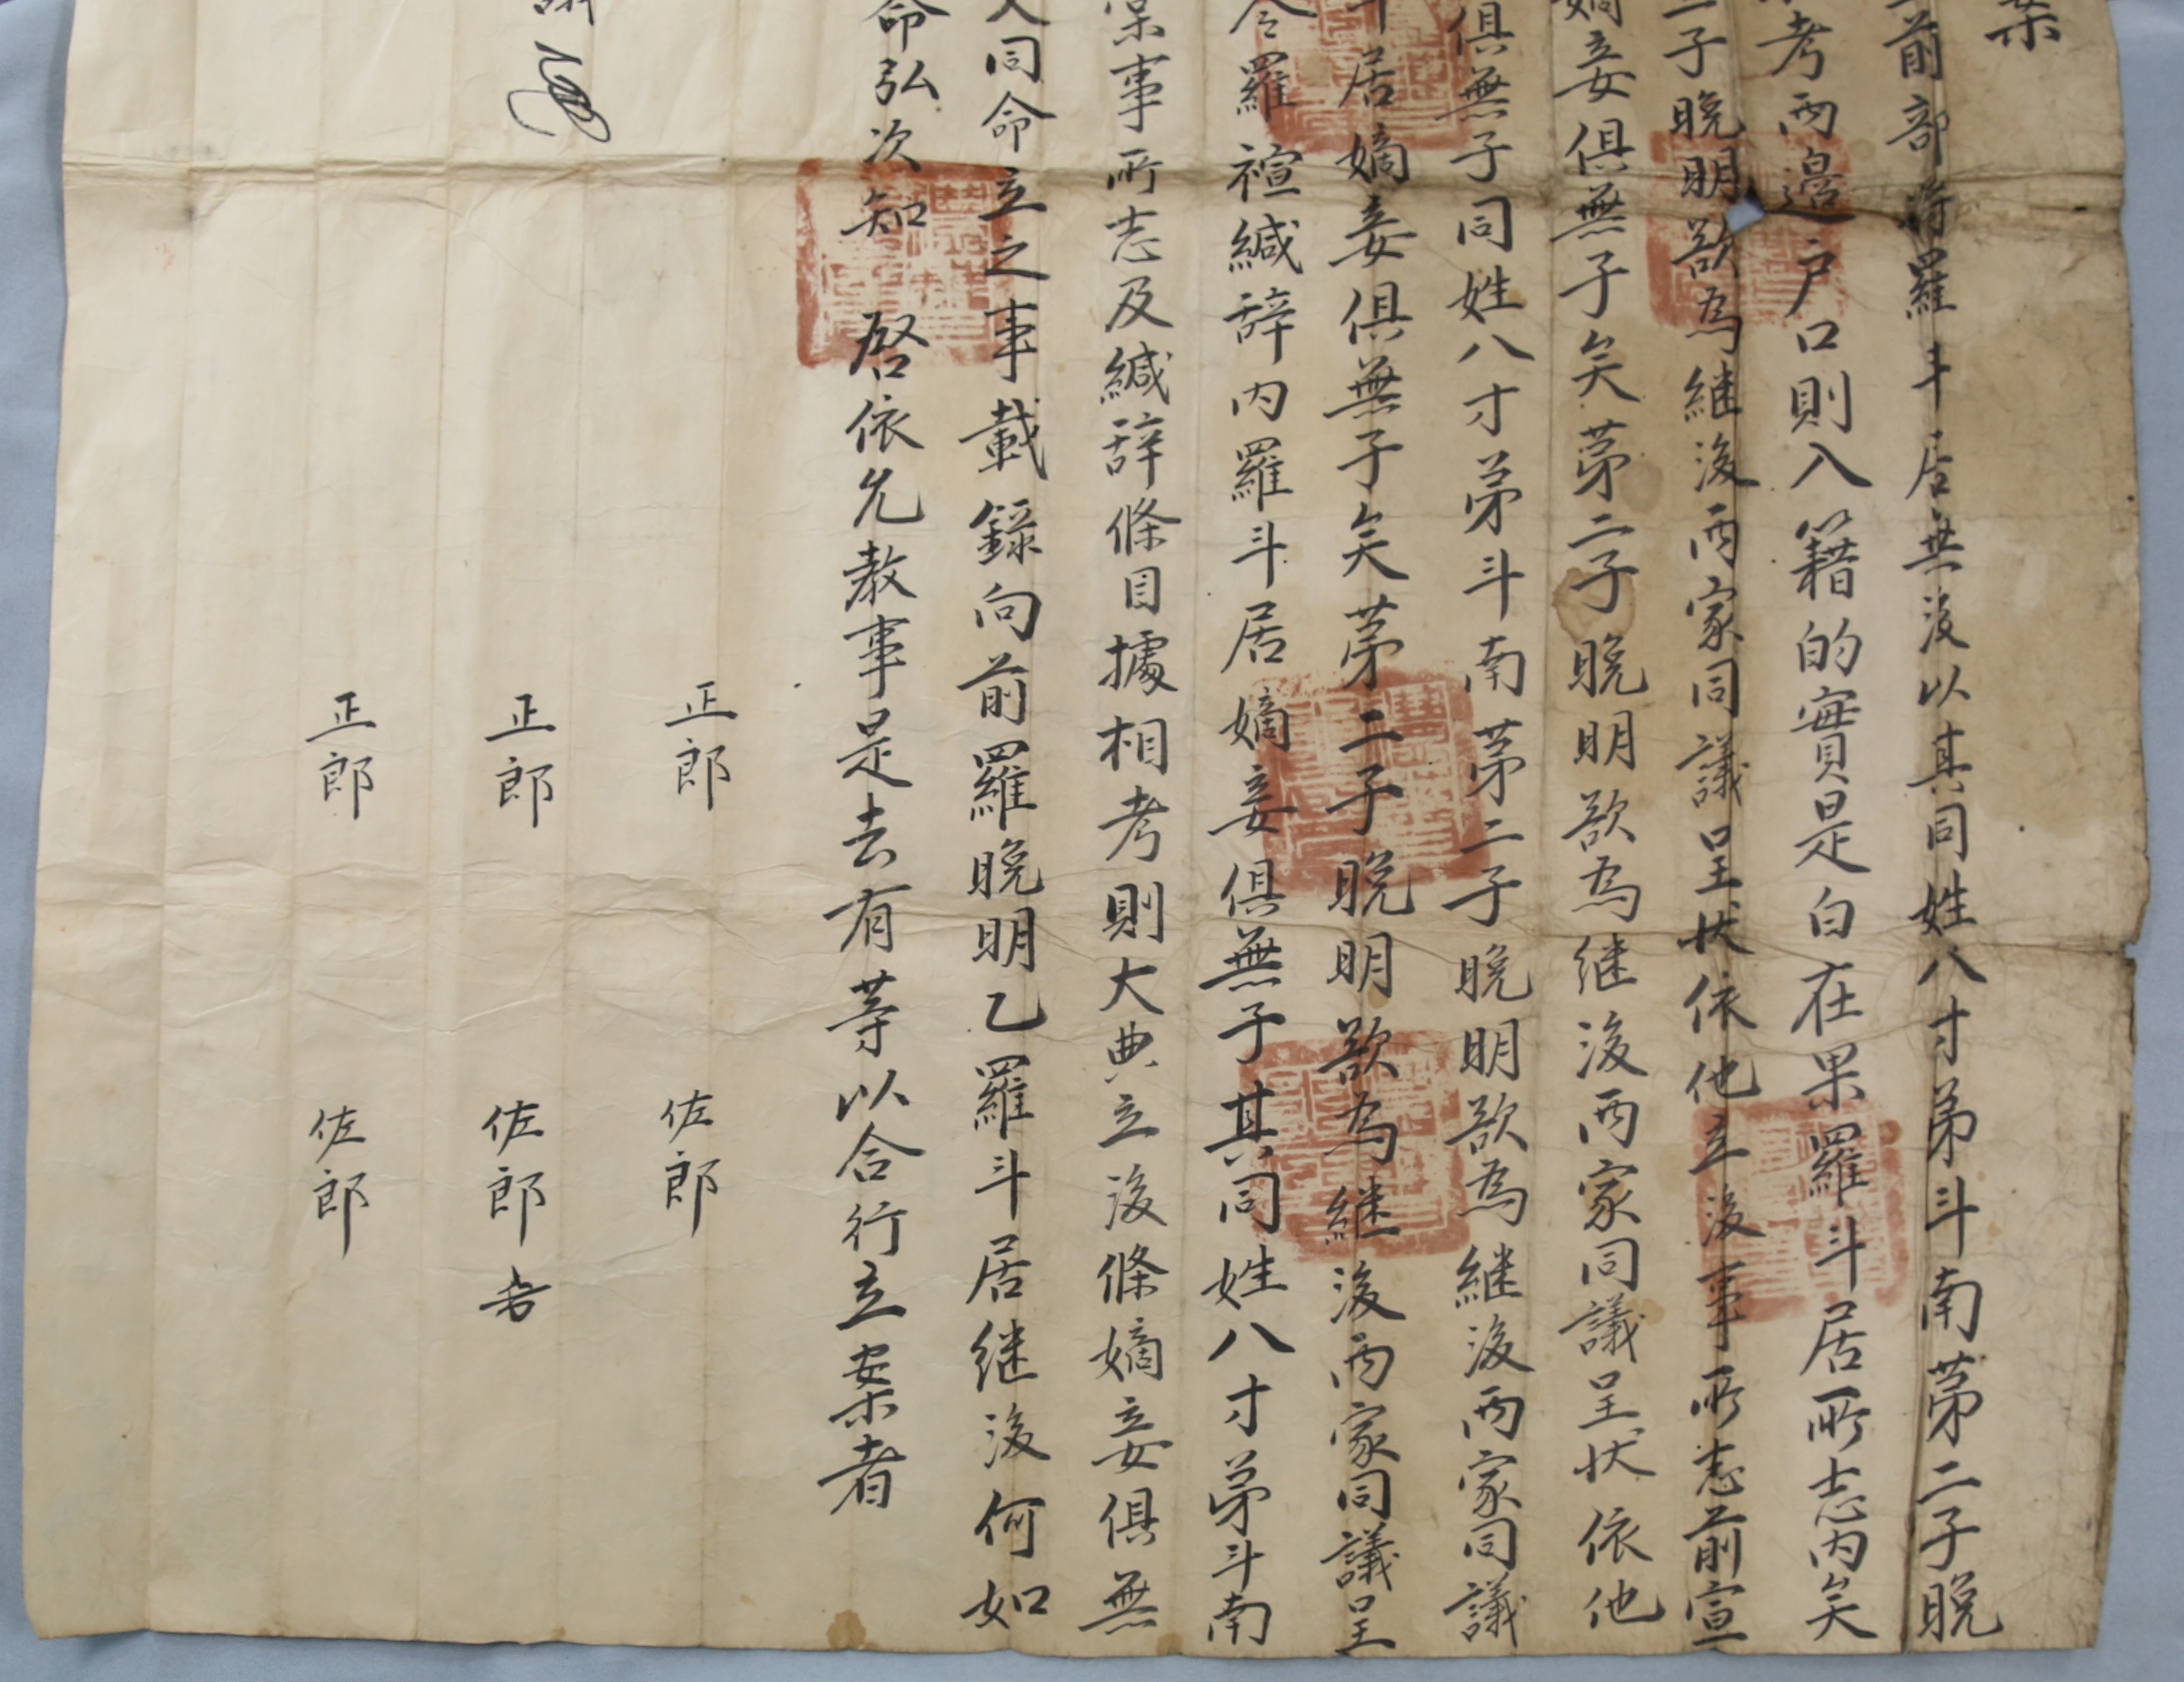 案
前部將羅斗居無後以其同姓八寸弟斗南苐二子晚
考兩邊戶口則入籍的實是白在果羅斗居所志內矣
二子晚明欲為継後兩家同議呈狀依他立後事所志前宣
嫡妾俱無子矣苐二子晚明欲為継後兩家同議呈狀依他
俱無子同姓八寸弟斗南苐二子晚明欲為継後兩家同議
斗居嫡妾俱無子矣苐二子晚明欲為継後兩家同議呈
令羅䙋緘辭內羅斗居嫡妾俱無子其同姓八寸弟斗南
案事所志及緘辞條目據相考則大典立後條嫡妾俱無
同命立之事載錄向前羅晚明乙羅斗居继後何如
命弘次知 啓依允教事是去有等以合行立案者
正郎 佐郎
正郎 佐郎
正郎 佐郎